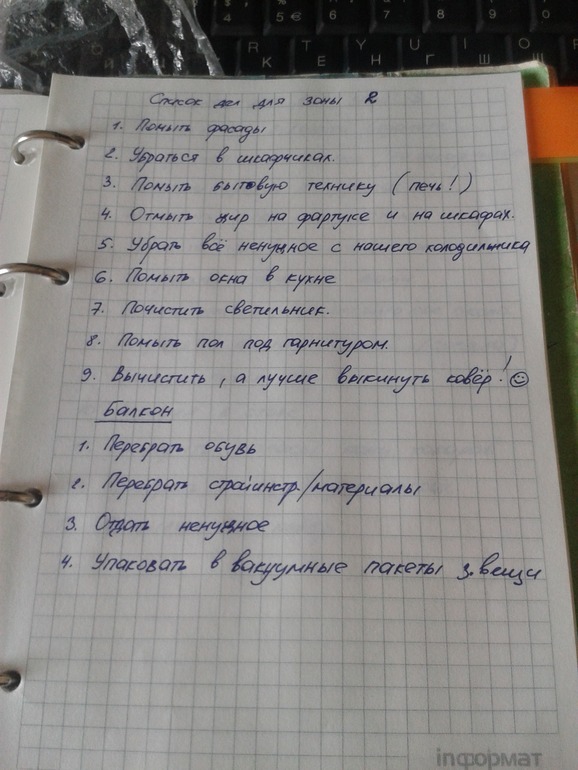 $ 4
% 5 €
6
7
8
9
0
R К
T Е
Y Н
U Г
I Ш
O
Список дел для зоны 2
1. Помыть фасады
2. Убраться в шкафчиках.
3. Помыть бытовую технику (печь!)
4. Отмыть жир на фартуке и на шкафах.
5. Убрать всё ненужное с нашего холодильника
6. Помыть окна в кухне
7. Почистить светильник.
8. Помыть пол под гарнитуром.
9. Вычистить, а лучше выкинуть ковёр! ☺
Балкон
1. Перебрать обувь
2. Перебрать стройинстр/материалы
3. Отдать ненужное
4. Упаковать в вакуумные пакеты з.вещи
inформат